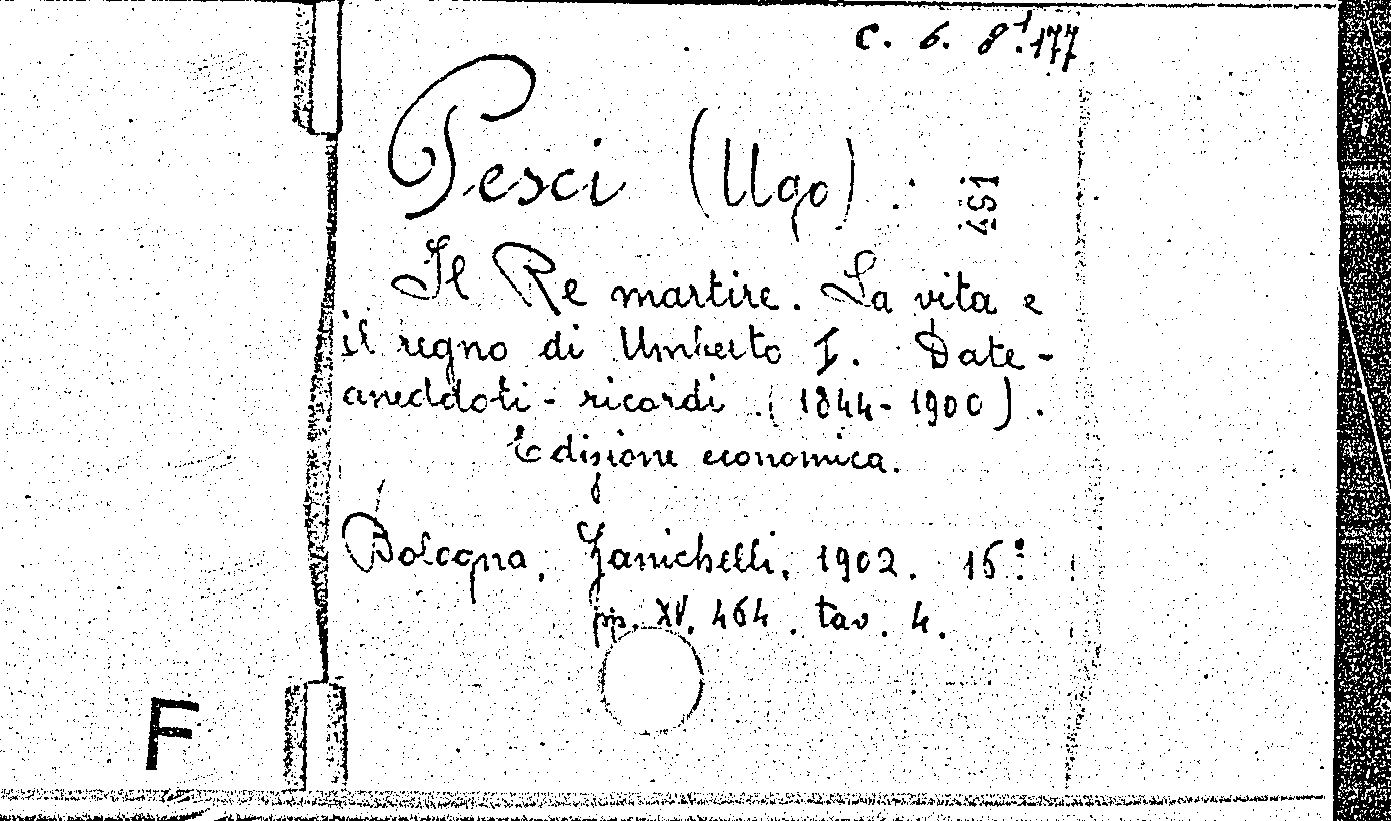 C. 6. 8¹. 177
Pesci (Ugo).
Il Re martire. La vita e
il regno di Umberto I. Date-
aneddoti - ricordi. (1844-1900).
Edizione economica.
Bologna, Zanichelli, 1902. 16°.
pp. XV. 464. tav. 4.
F